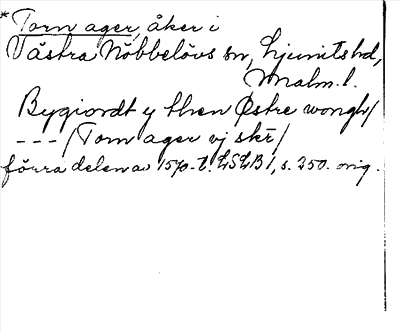 * Torn ager, åker i
Västra Nöbbelövs sn, Ljunits hd,
Malm. l.
Bygiordt y then Østre wongh/
---/Torn ager vj skr̄/
förra delen av 1570-t. LSLB 1, s. 250. orig.